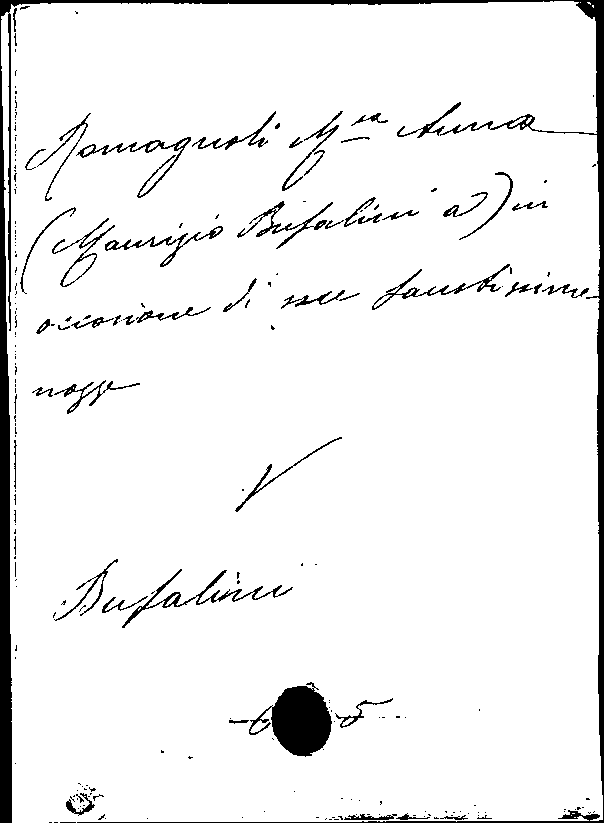 Romagnoli M.ssa Anna
(Maurizio Bufalini a) in
occasione di sue faustissime
nozze
V
Bufalini